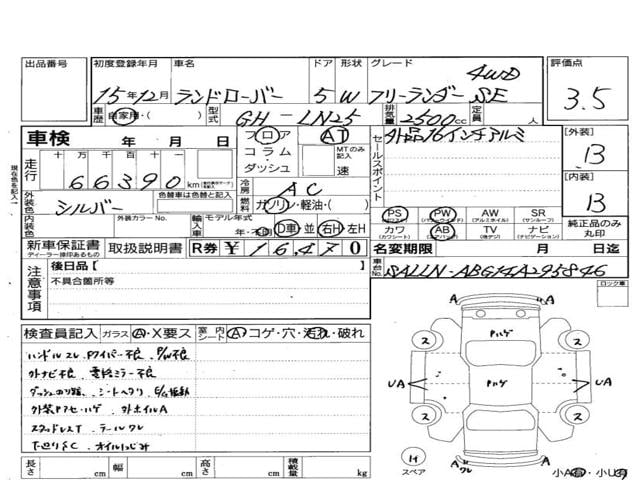 出品番号 初度登録年月 車名 ドア 形状 グレード 評価点
15年12月 ランドローバー 5 W フリーランダー SE 4WD 3.5
車歴 自家用・( ) 型式 GH-LN25 排気量 2500cc 定員 人
車検 年 月 日 フロア AT セールスポイント 社外品16インチアルミ [外装]
コラム MTのみ記入 B
走行 十 万 千 百 十 ダッシュ 速
66390km [内装]
外装色 シルバー 色替車は色替と記入 冷房 AC B
燃料 ガソリン・軽油・( )
PS PW AW SR
外装カラーNo. 輸入車 モデル年式 カワ AB TV ナビ 純正品のみ丸印
内装色 年・不明 D車・並 右H 左H
新車保証書 取扱説明書 R券 ¥16,470 名変期限 月 日迄
ディーラー捺印あるもの
注意事項 後日品【 】 車台No. SALLN-ABG14A295846
不具合箇所等 ロック車
検査員記入 ガラス A・X要ス 室内シート A コゲ・穴・汚れ・破れ
ハンドルスレ、Rワイパー不良、P/W不良
外ナビ不良、電格ミラー不良
外装Pアセ・ハゲ 外ホイルA
スタッドレスT テールワレ
下廻りSC オイルにじみ
A A
Pハゲ
ス ス
UA Pハゲ UA
ス ス
スペア
A ワレ A
長さ cm 幅 cm 高さ cm 積載量 kg 小A有・小U有